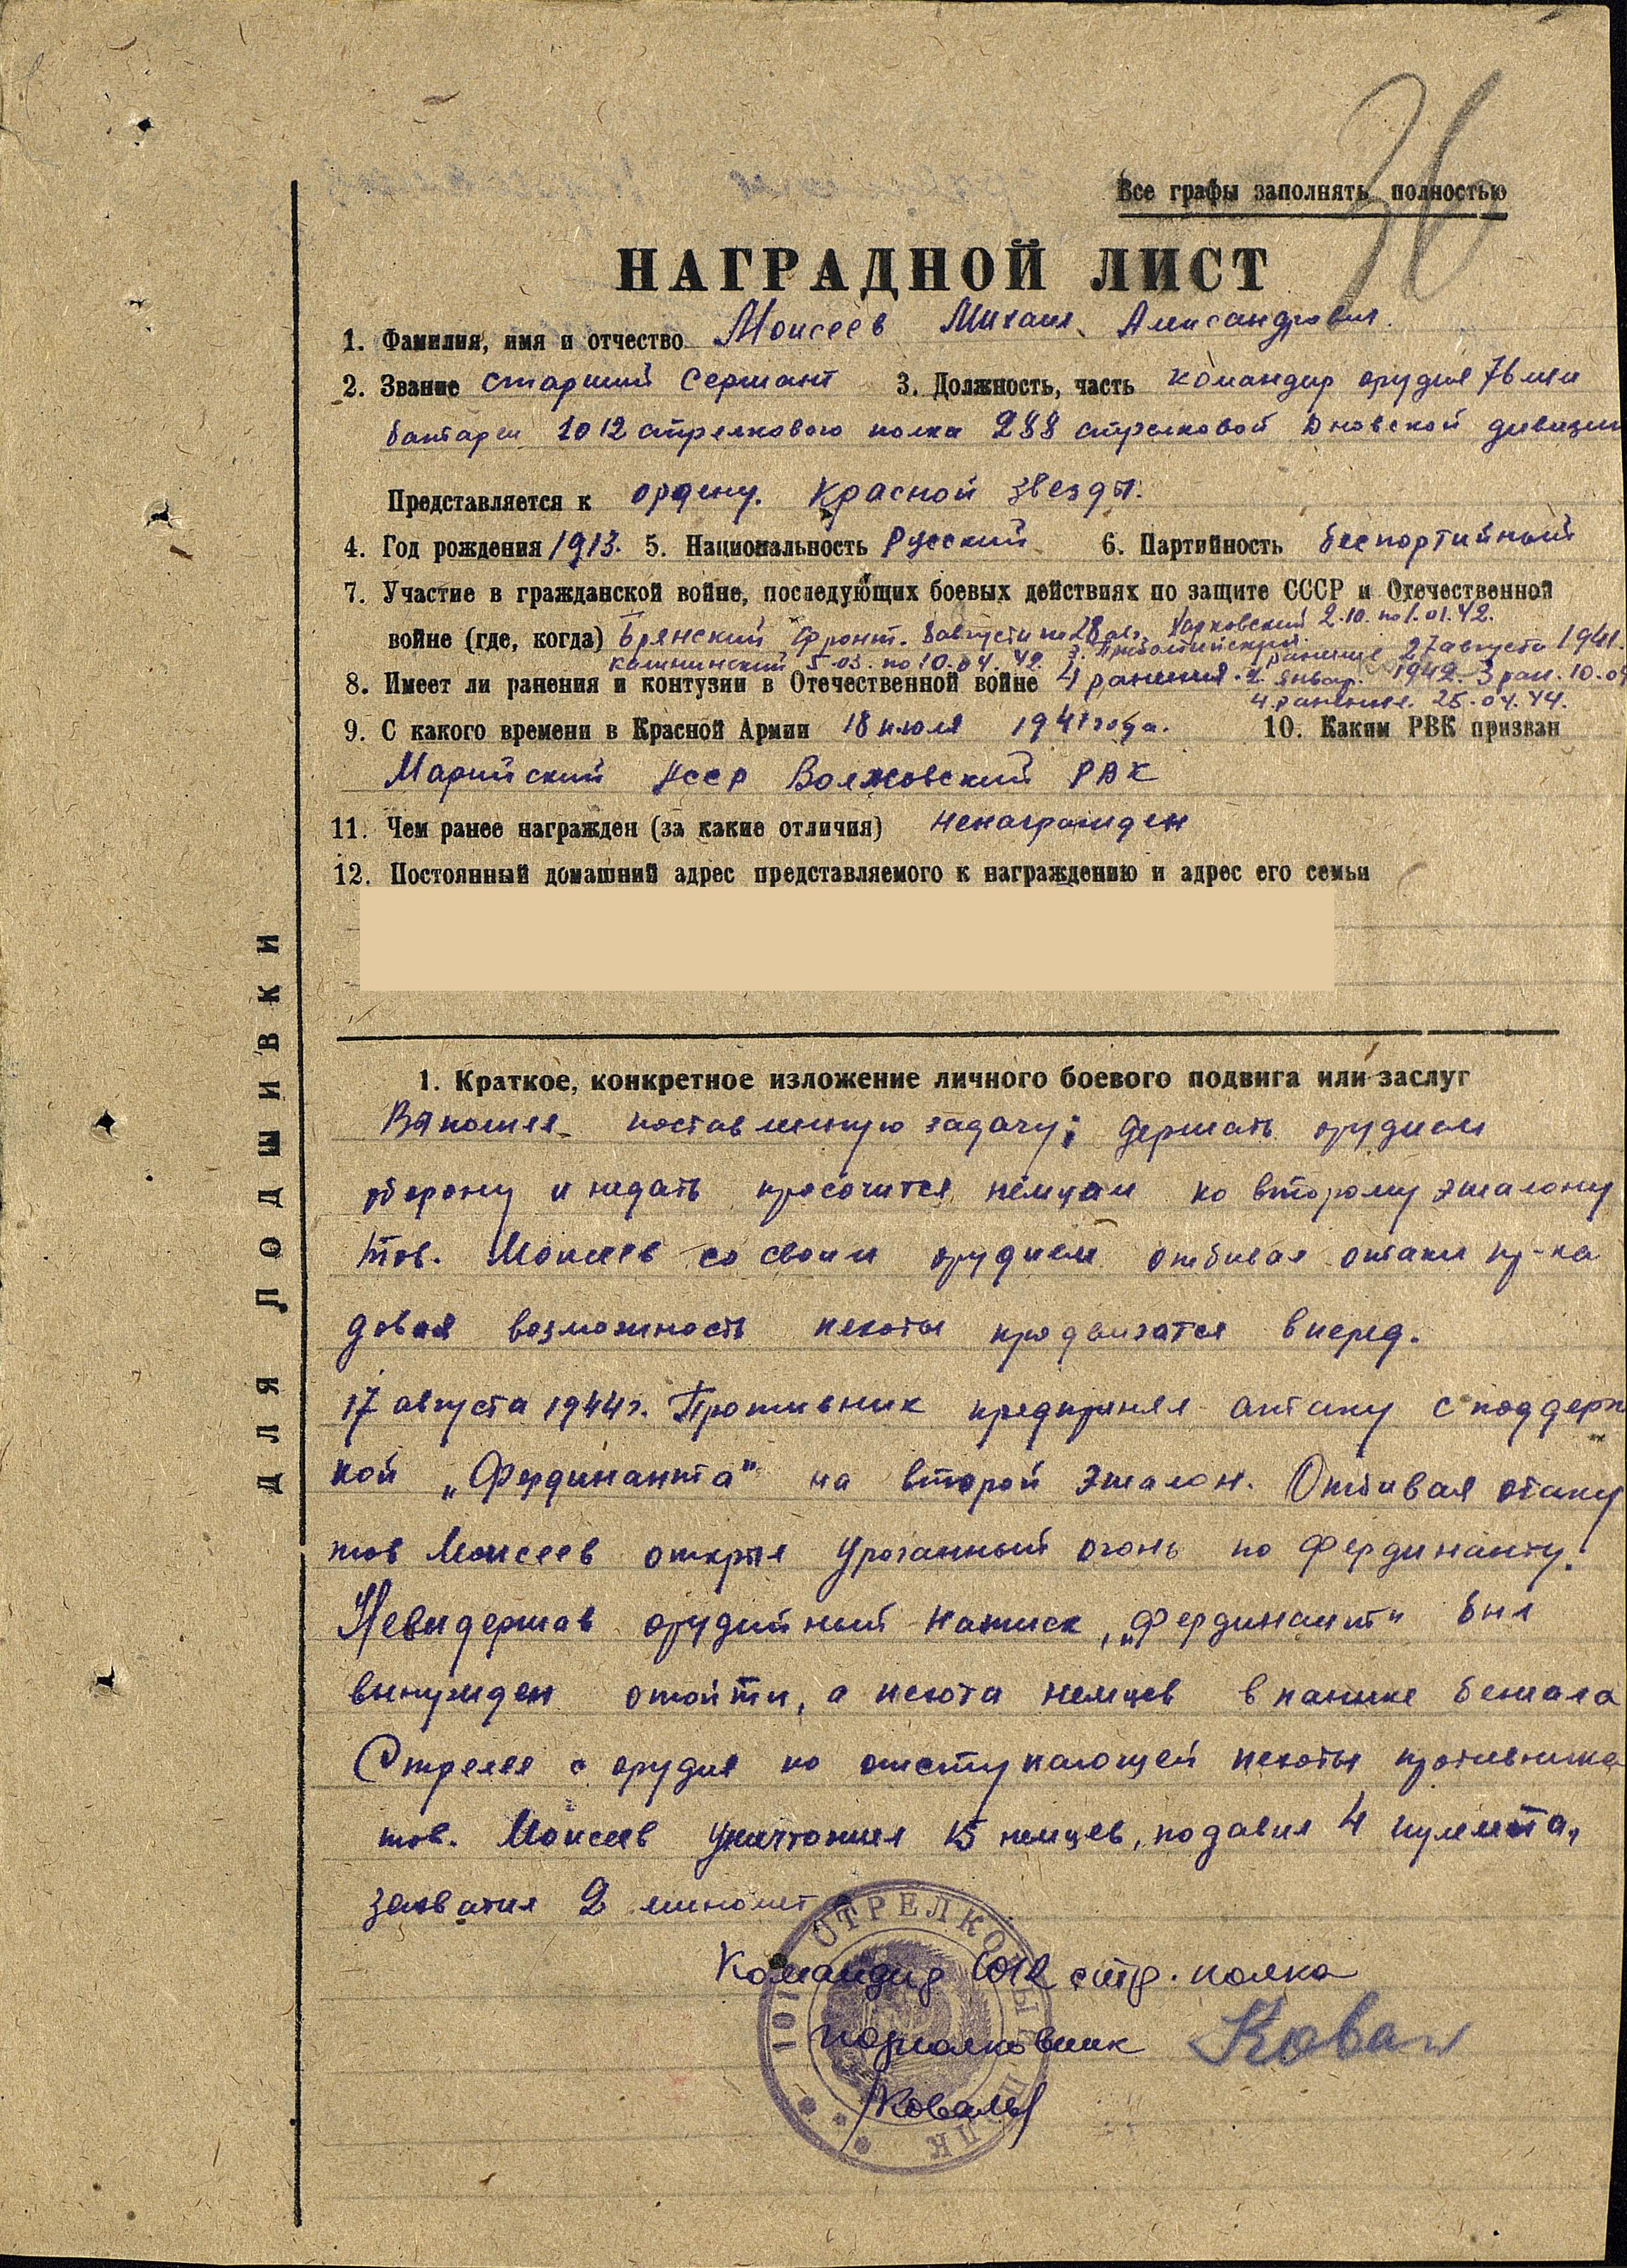 36
Все графы заполнять полностью
НАГРАДНОЙ ЛИСТ
1. Фамилия, имя и отчество Моисеев Михаил Александрович.
2. Звание старший Сержант 3. Должность, часть командир орудия 76 мм
батареи 1012 стрелкового полка 288 стрелковой Дновской дивизии
Представляется к ордену. Красной звезды.
4. Год рождения 1913. 5. Национальность Русский 6. Партийность беспортийный
7. Участие в гражданской войне, последующих боевых действиях по защите СССР и Отечественной
войне (где, когда) Брянский фронт. 8 августа по 28 авг. Харковский 2.10. по 1.01.42.
калининский 5.03. по 10.04.42. 3. Прибалтийский.
8. Имеет ли ранения и контузии в Отечественной войне 4 ранения. ранение 27 августа 1941.
2. январ. 1942. 3 ран. 10.04
4 ранение. 25.04.44.
9. С какого времени в Красной Армии 18 июля 1941 года. 10. Каким РВК призван
Марийский АССР Волжовский РВК
11. Чем ранее награжден (за какие отличия) ненагражден
12. Постоянный домашний адрес представляемого к награждению и адрес его семьи
ДЛЯ ПОДШИВКИ
1. Краткое, конкретное изложение личного боевого подвига или заслуг
поставленную задачу; держать орудием
оборону и недать просочится немцам ко второму эшалону
тов. Моисеев со своим орудием отбивая атаки пр-ка
довая возможность пехоты продвигатся вперед.
17 августа 1944 г. Противник предпринял антаку с поддерж
кой „Фердинанта" на второй эшалон. Отбивая атаку
тов Моисеев открыл ураганный огонь по Фердинанту.
Невидержав орудийный натиск, „Фердинант" был
вынужден отойти, а пехота немцев в панике бежала
Стреляя с орудия по отступающей пехоты противника
тов. Моисеев уничтожил 15 немцев, подавил 4 пулемета,
захватил 2 миномет
Командир 1012 стр. полка
подполковник Ковал
/Коваль/
1012 СТРЕЛКОВЫЙ ПОЛК